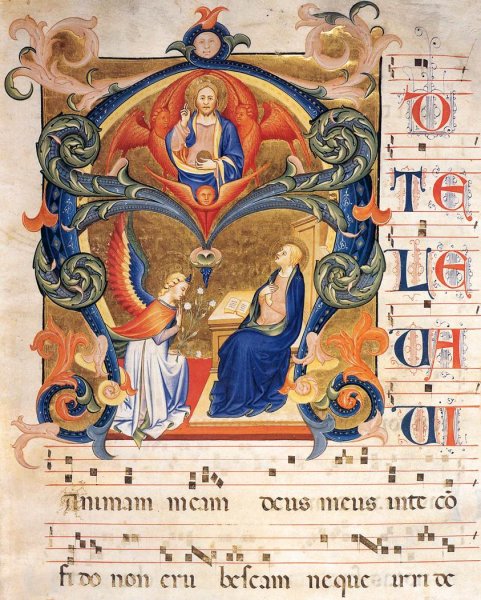 A D
TE
LE
UA
UI
animam meam deus meus. inte cō
fido non eru bescam neque irri de